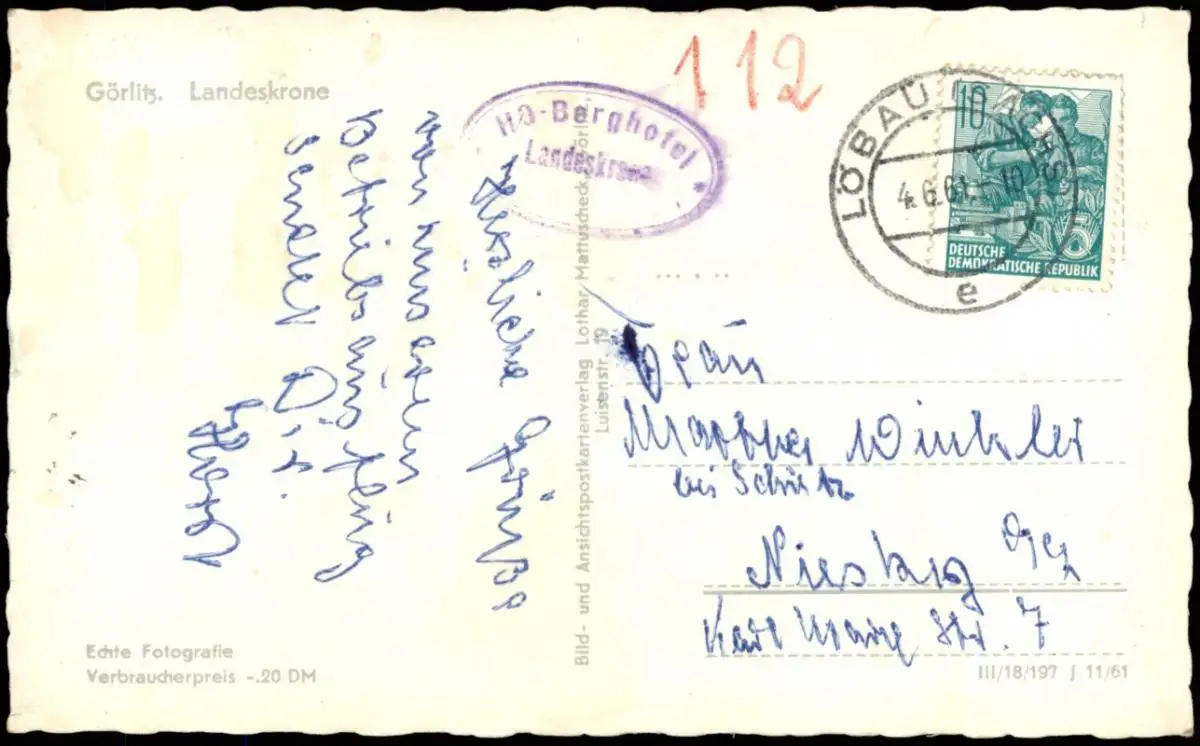 Görlitz. Landeskrone
Herzliche Grüße
von unserem
Betriebsausflug
sendet Dir
Echte Fotografie
Verbraucherpreis -.20 DM
HO-Berghotel
Landeskrone
*
Bild- und Ansichtspostkartenverlag Lothar Mattuscheck, Görlitz
Luisenstr. 19
112
LÖBAU (SACHS)
4.6.61.-10
e
10
5
DEUTSCHE
DEMOKRATISCHE REPUBLIK
Frau
Martha Winkler
bei Schütz
Niesky
Karl Marx Str. 7
III/18/197 J 11/61